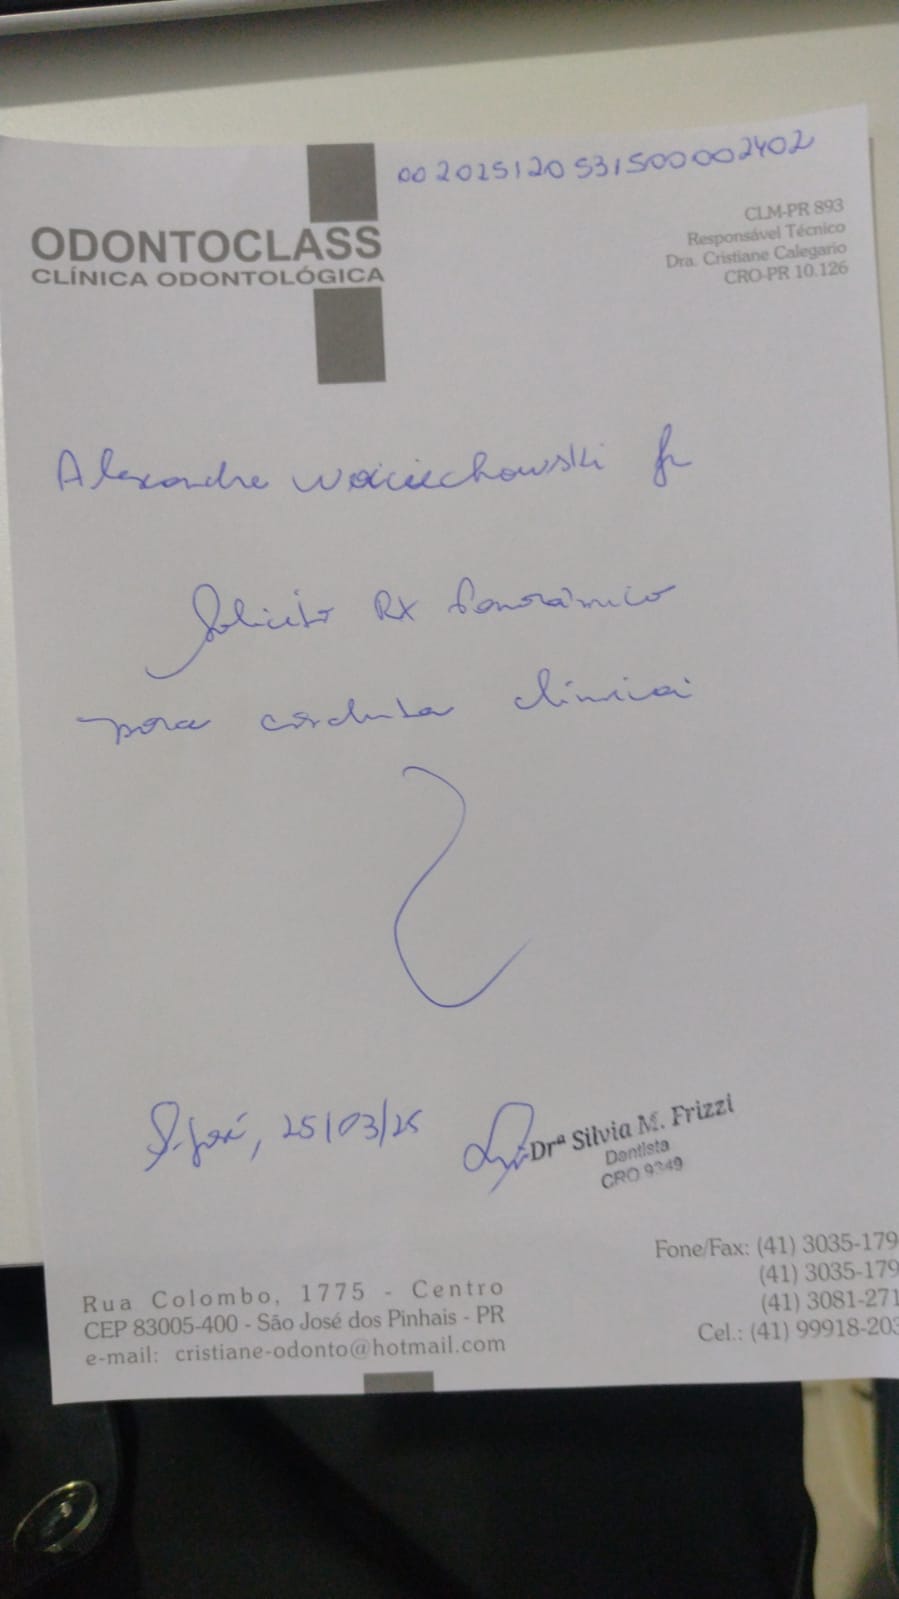 00 2025120 531500002402
ODONTOCLASS
CLÍNICA ODONTOLÓGICA
CLM-PR 893
Responsável Técnico
Dra. Cristiane Calegario
CRO-PR 10.126
Alexandre Wojciechowski Jr
Solicito RX Panorâmico
para conduta clínica
S. José, 25/03/25
Drª Silvia M. Frizzi
Dentista
CRO 9349
Rua Colombo, 1775 - Centro
CEP 83005-400 - São José dos Pinhais - PR
e-mail: cristiane-odonto@hotmail.com
Fone/Fax: (41) 3035-179
(41) 3035-179
(41) 3081-271
Cel.: (41) 99918-203